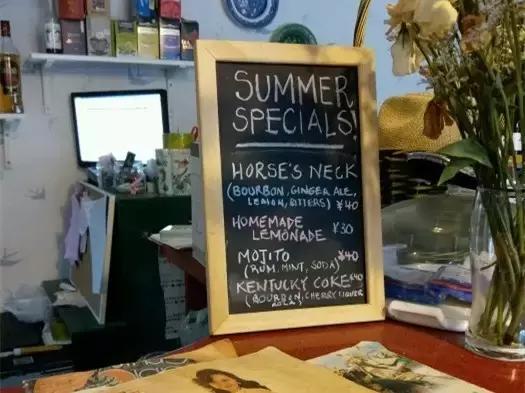 SUMMER
SPECIALS!
HORSE'S NECK
(BOURBON, GINGER ALE,
LEMON, BITTERS) ¥40
HOMEMADE
LEMONADE ¥30
MOJITO ¥40
(RUM, MINT, SODA)
KENTUCKY COKE ¥40
(BOURBON, CHERRY LIQUER